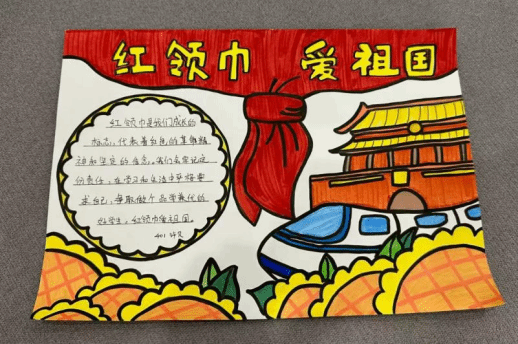 红领巾 爱祖国
红领巾是我们成长的
标志,代表着红色的革命精
神和坚定的信念。我们要牢记这
份责任,在学习和生活中严格要
求自己,争取做个品学兼优的
好学生。红领巾爱祖国。
401